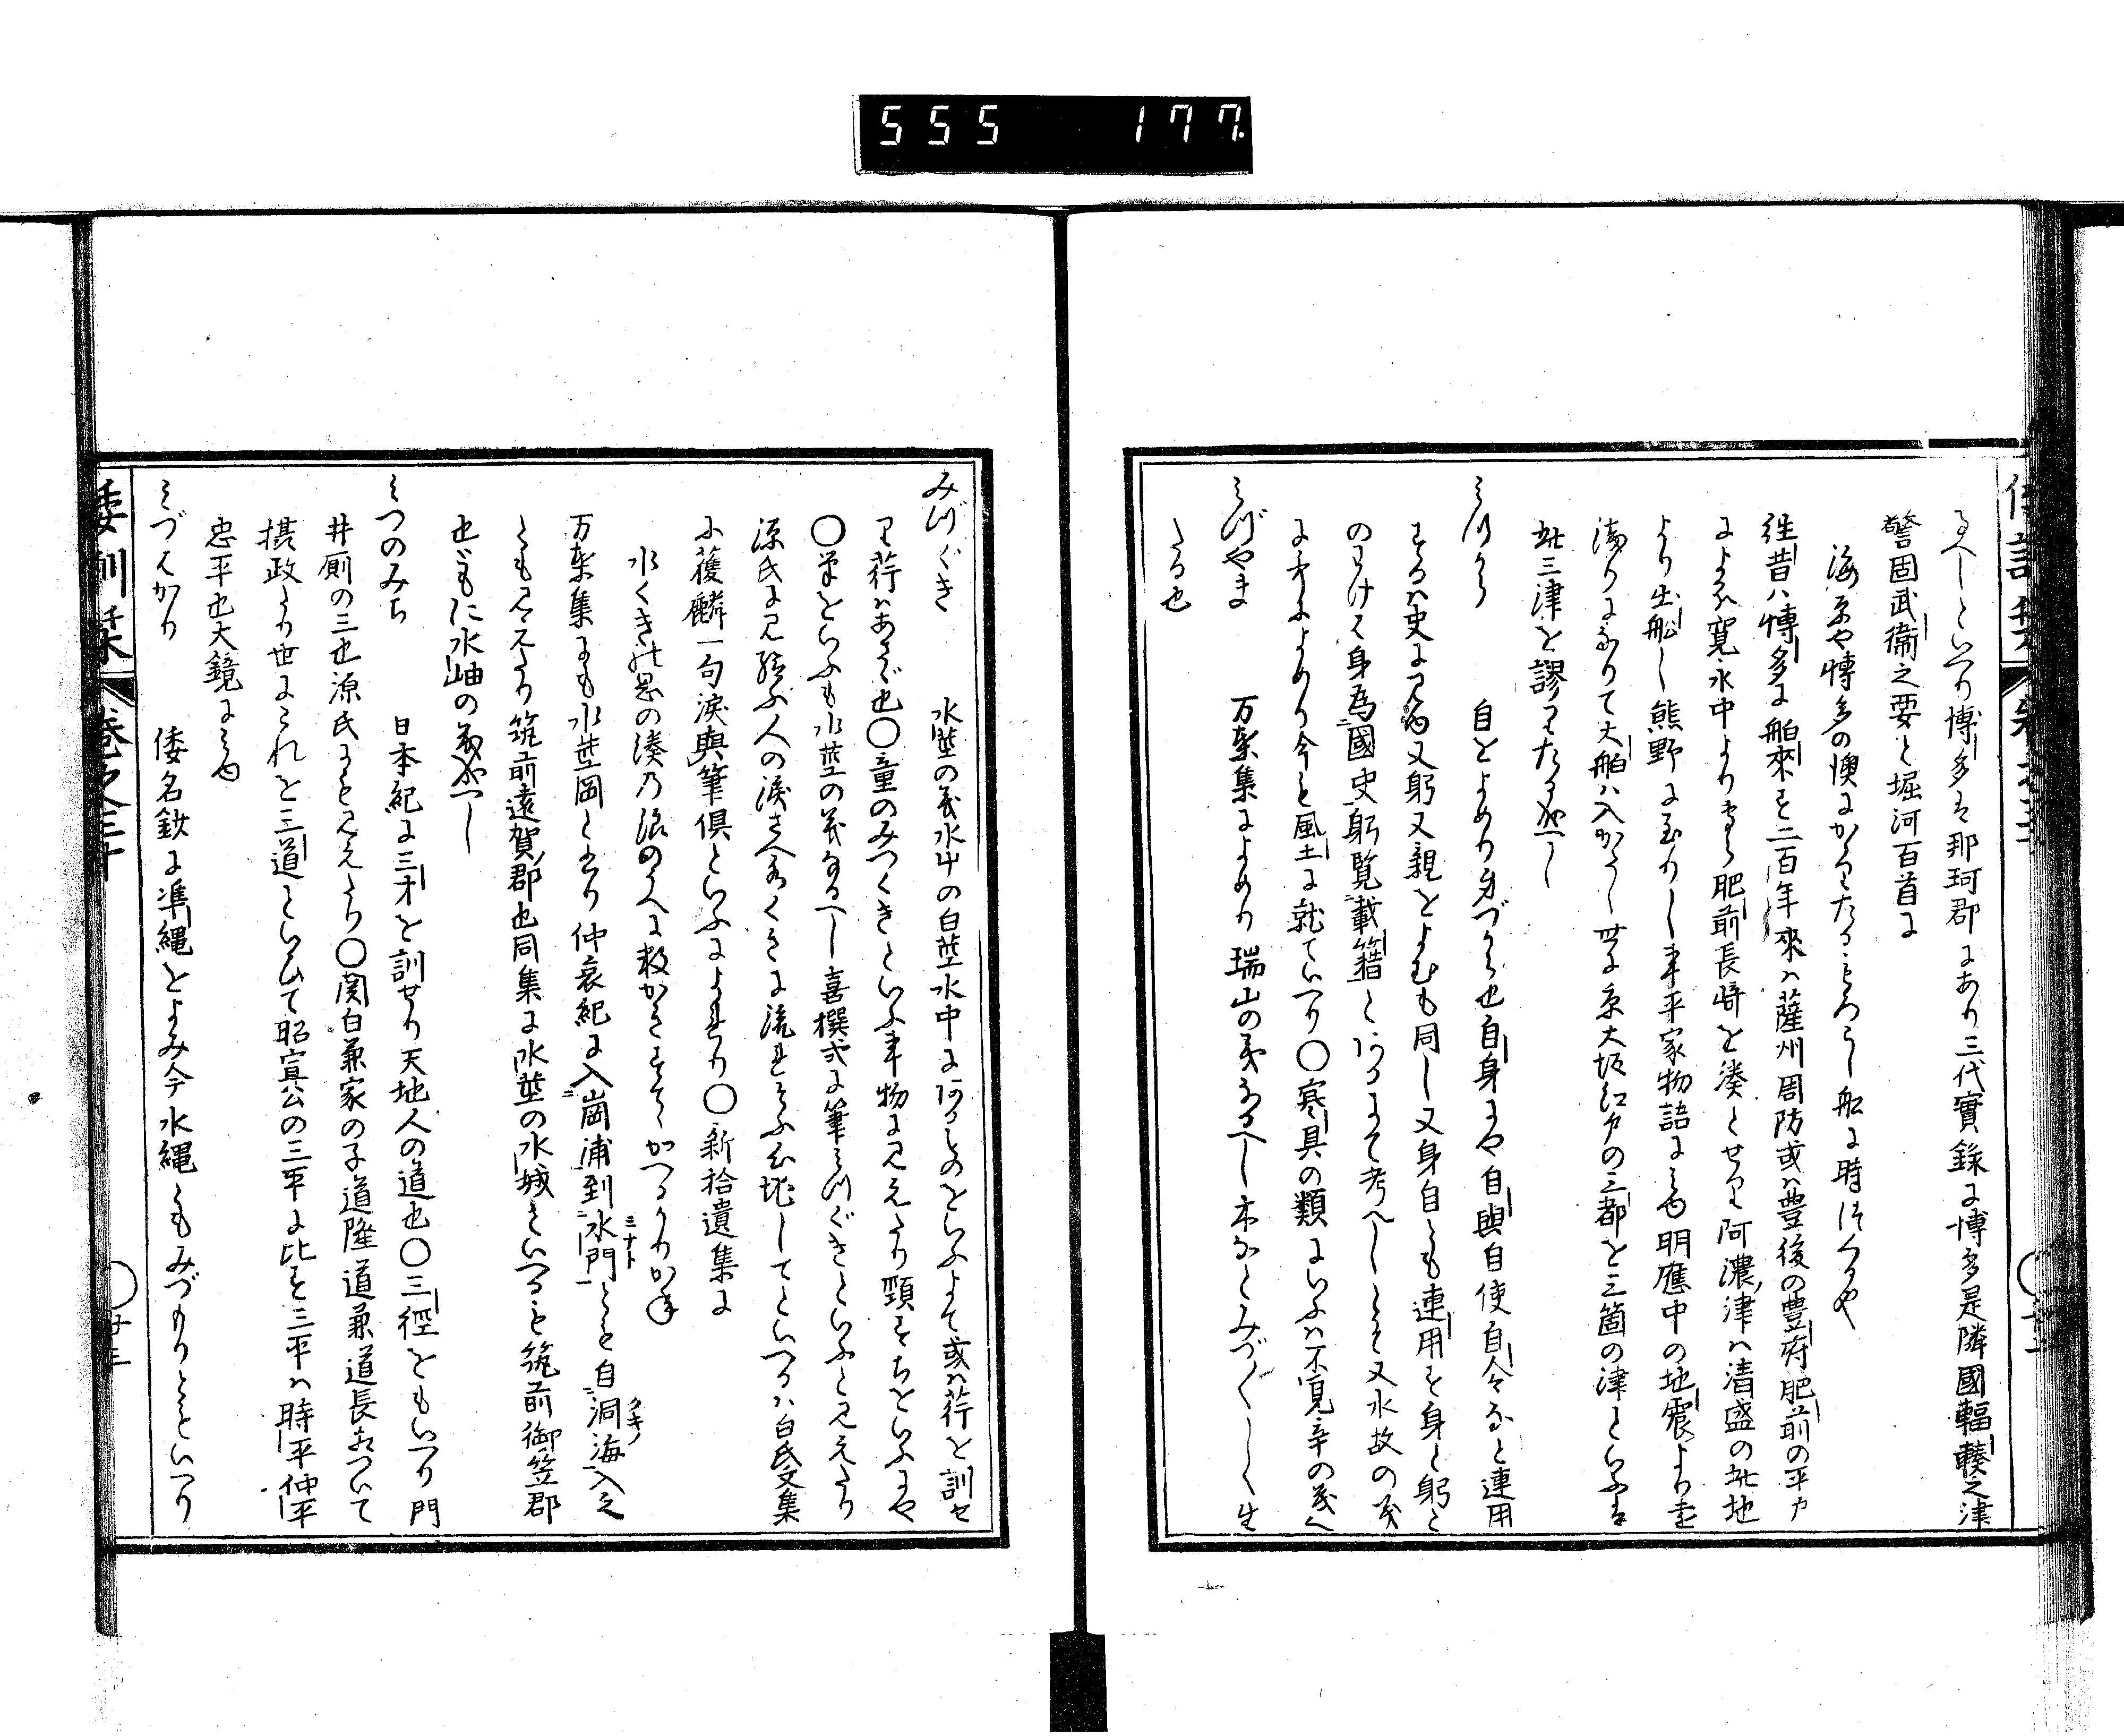 555 177
るへしといへり博多は那珂郡にあり三代實録に博多是隣國輻輳之津
警固武衞之要と堀河百首に
海原や博多の澳にかゝりたるもろこし船に時つくるや
徃昔ハ博多に舶來す二百年來ハ薩州周防或ハ豊後の豊府肥前の平戸
によれハ寛永中より専ら肥前長﨑を湊とせり阿濃津ハ清盛の此地
より出船し熊野に至りし事平家物語にみゆ明應中の地震より遠
淺りになりて大舶ハ入かたし世に京大坂江戸の三都を三箇の津といふは
此三津を謬りたる成へし
みつから　自をよめり身づから也自身にや自與自使自今なと連用
せるハ史にみゆ又躬又親をよむも同し又身自とも連用す身と躬と
のわけは身為國史躬覧載籍とあるにて考へしとそ又水故の義
に哥によめり今も風土に就ていへり〇寒具の類にいふハ不寛辛の義へ
みづやま　万葉集によめり瑞山の義なるへし木なとみづ〳〵しく生
たる也
みづぐき　水莖の義水中の白莖水中にあるものをいふよて或ハ荇を訓せ
り荇ハあさゞ也〇童のみつくきといふ事物にみえたり頸すちをいふにや
〇筆をいふも水莖の義なるへし喜撰式に筆みづぐきといふとみえたり
源氏にみ給ふ人の涙さへ水くきに流れそふ心地してといへるハ白氏文集
に獲麟一句涙與筆倶といふによれり〇新拾遺集に
水くきは思の湊乃浪のうへに數かきすてゝかへるかりかね
万葉集にも水莖岡と書り仲哀紀に入崗浦到水門とも自洞海入之
ともみえたり筑前遠賀郡也同集に水莖の水城といへるも筑前御笠郡
也ともに水岫の義成へし
みつのみち　日本紀に三才を訓せり天地人の道也〇三徑をもいへり門
井厠の三也源氏にもみえたり〇関白兼家の子道隆道兼道長相つゝいて
摂政たり世にこれを三道といひて昭宣公の三平に比す三平ハ時平仲平
忠平也大鏡にみゆ
みづはかり　倭名鈔に準縄をよみ今水縄ともみづもりともいへり
倭訓栞　巻之三十　〇廿三